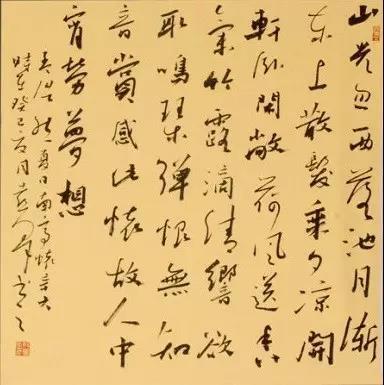 山光忽西落池月漸
東上散髮乘夕涼開
軒臥閑敞荷風送香
氣竹露滴清響欲
取鳴琹彈恨無知
音賞感此懷故人中
宵勞夢想
孟浩然夏日南亭懷辛大
時在癸巳夏月